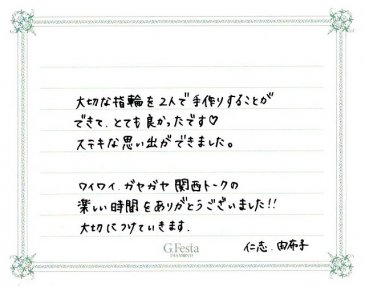 大切な指輪を2人で手作りすることが
できて、とても良かったです♡
ステキな思い出ができました。
ワイワイ、ガヤガヤ関西トークの
楽しい時間をありがとうございました!!
大切につけていきます。
仁志、由布子
G.Festa
DIAMOND